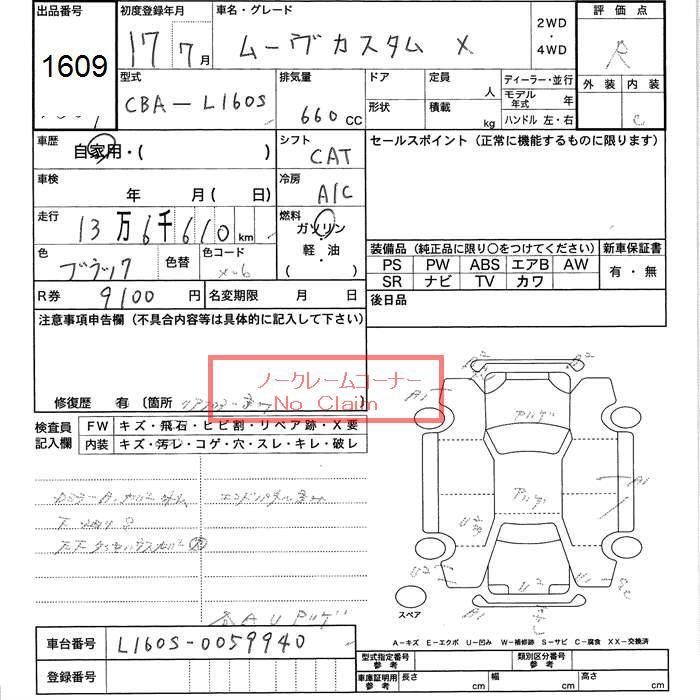 出品番号 初度登録年月 車名・グレード 評価点
1609 17 7月 ムーヴカスタム X 2WD ・ 4WD R
型式 排気量 ドア 定員 人 ディーラー・並行 外装 内装
CBA-L160S 660 CC 形状 積載 kg モデル年式 年 C
ハンドル 左・右
車歴 自家用・( ) シフト CAT セールスポイント(正常に機能するものに限ります)
車検 年 月( 日) 冷房 A/C
走行 13万6千610km 燃料 ガソリン
色 ブラック 色替 色コード X-6 軽・油 ( )
装備品(純正品に限り○をつけてください) 新車保証書
PS PW ABS エアB AW 有・無
SR ナビ TV カワ
R券 9100円 名変期限 月 日 後日品
注意事項申告欄(不具合内容等は具体的に記入して下さい)
ノークレームコーナー
No Claim
修復歴 有 〔箇所 〕
検査員記入欄 FW キズ・飛石・ヒビ割・リペア跡・X要
内装 キズ・汚レ・コゲ・穴・スレ・キレ・破レ
A2 A2
A1
アリゲ
A1
アリゲ
U2
U2 U2 A1
スペア
各AUアリゲ
A-キズ E-エクボ U-凹み W-補修跡 S-サビ C-腐食 XX-交換済
車台番号 L160S-0059940
型式指定番号 参考 類別区分番号 参考
登録番号
車庫証明用 参考 長さ cm 幅 cm 高さ cm